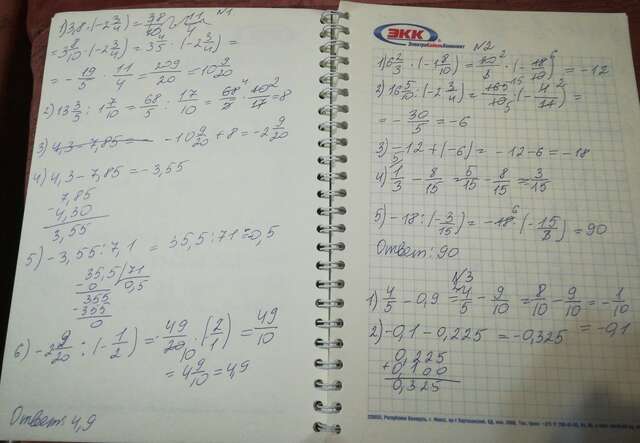 N1
1) 3,8 · (-2 3/4) = 38/10
= 3 8/10 · (-2 3/4) = 3 4/5 · (-2 3/4) =
= - 19/5 · 11/4 = 209/20 = 10 9/20
2) 13 3/5 : 1 7/10 = 68/5 : 17/10 = 68/5 · 10/17 = 8
3) 4,3 - 7,85 = -10 9/20 + 8 = -2 9/20
4) 4,3 - 7,85 = -3,55
7,85
- 4,30
3,55
5) -3,55 : 7,1 = 35,5 : 71 = 0,5
35,5 | 71
- 0 0,5
355
- 355
0
6) -2 9/20 : (- 1/2) = - 49/20 : (2/1) = 49/10
= 4 9/10 = 4,9
Ответ: 4,9
ЭКК
ЭлектроКабельКомплект
N2
1) 6 2/3 · (-1 8/10) = 20/3 · (- 18/10) = -12
2) 16 5/10 : (-2 3/4) = 165/10 · (- 4/11) =
= - 30/5 = -6
3) -12 + (-6) = -12 - 6 = -18
4) 1/3 - 8/15 = 5/15 - 8/15 = 3/15
5) -18 : (- 3/15) = -18 · (- 15/3) = 90
Ответ: 90
N3
1) 4/5 - 0,9 = 4/5 - 9/10 = 8/10 - 9/10 = - 1/10
= -0,1
2) -0,1 - 0,225 = -0,325
0,225
+ 0,100
0,325